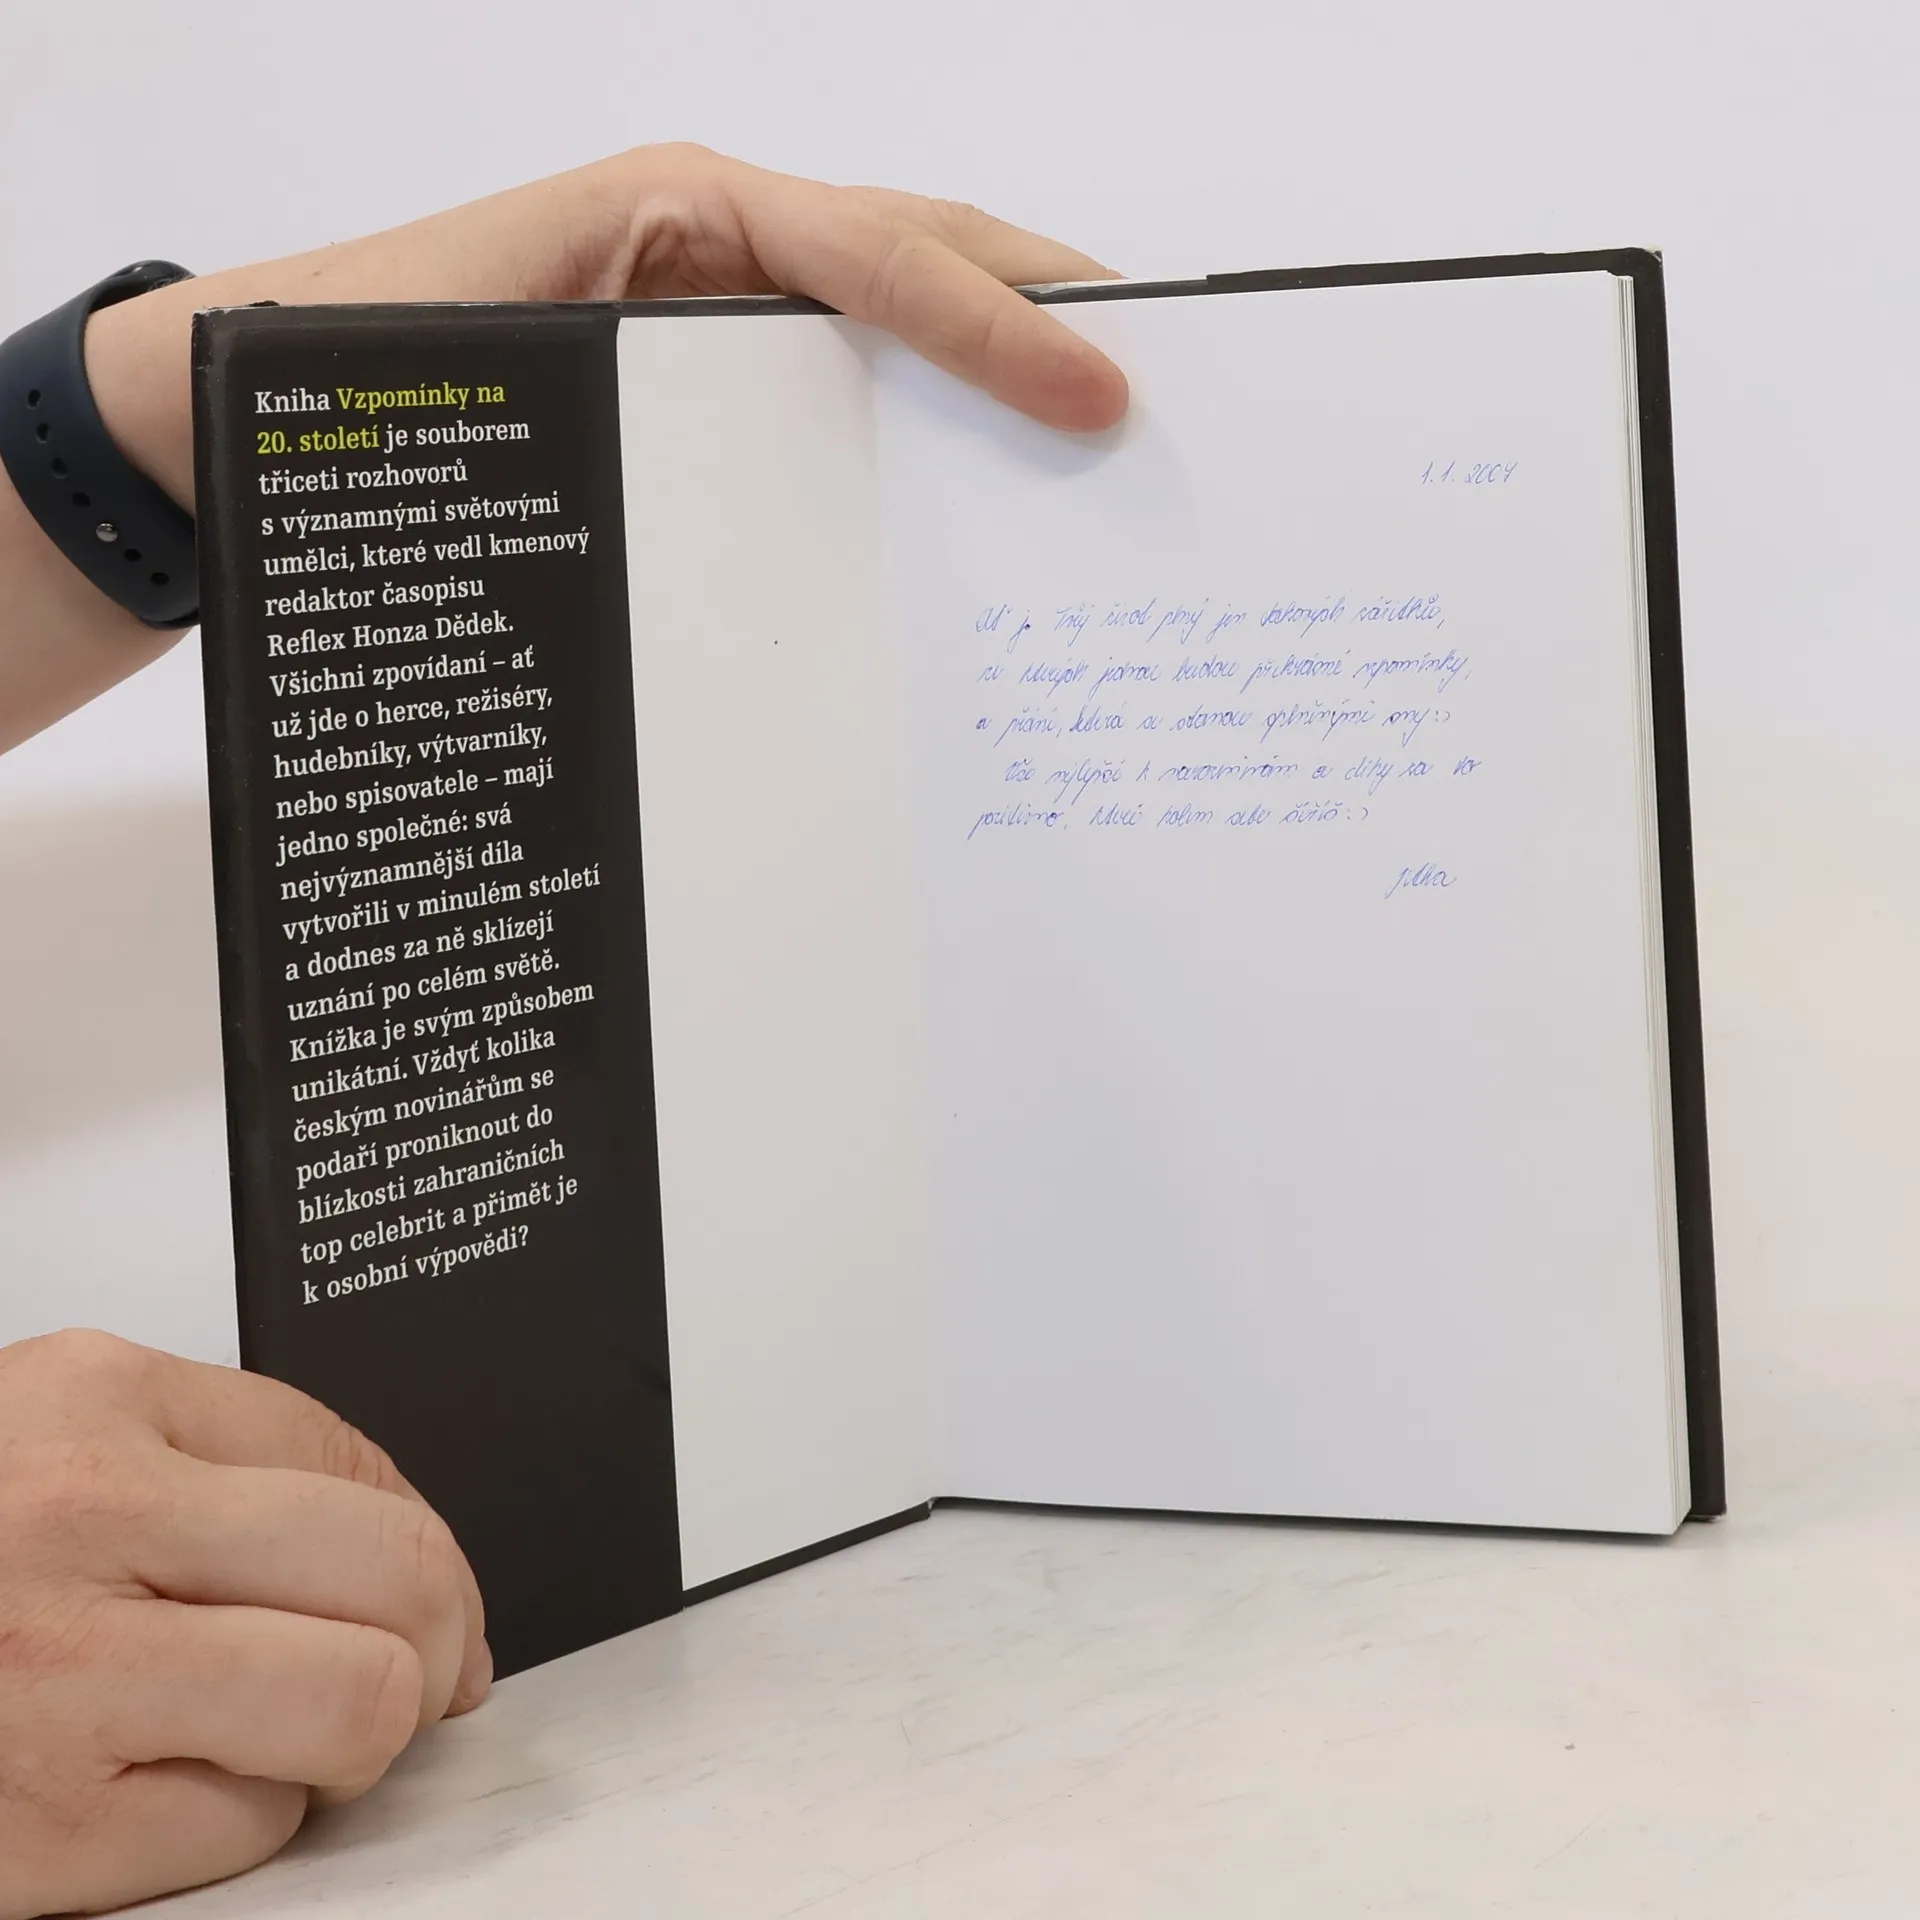 Kniha Vzpomínky na
20. století je souborem
třiceti rozhovorů
s významnými světovými
umělci, které vedl kmenový
redaktor časopisu
Reflex Honza Dědek.
Všichni zpovídaní – ať
už jde o herce, režiséry,
hudebníky, výtvarníky,
nebo spisovatele – mají
jedno společné: svá
nejvýznamnější díla
vytvořili v minulém století
a dodnes za ně sklízejí
uznání po celém světě.
Knížka je svým způsobem
unikátní. Vždyť kolika
českým novinářům se
podaří proniknout do
blízkosti zahraničních
top celebrit a přimět je
k osobní výpovědi?
1. 1. 2007
Ať je Tvůj život plný jen takových zážitků,
ze kterých jednou budou překrásné vzpomínky,
a přání, která se stanou splněnými sny :)
Vše nejlepší k narozeninám a díky za to
pozitivno, které kolem sebe šíříš :)
Jitka